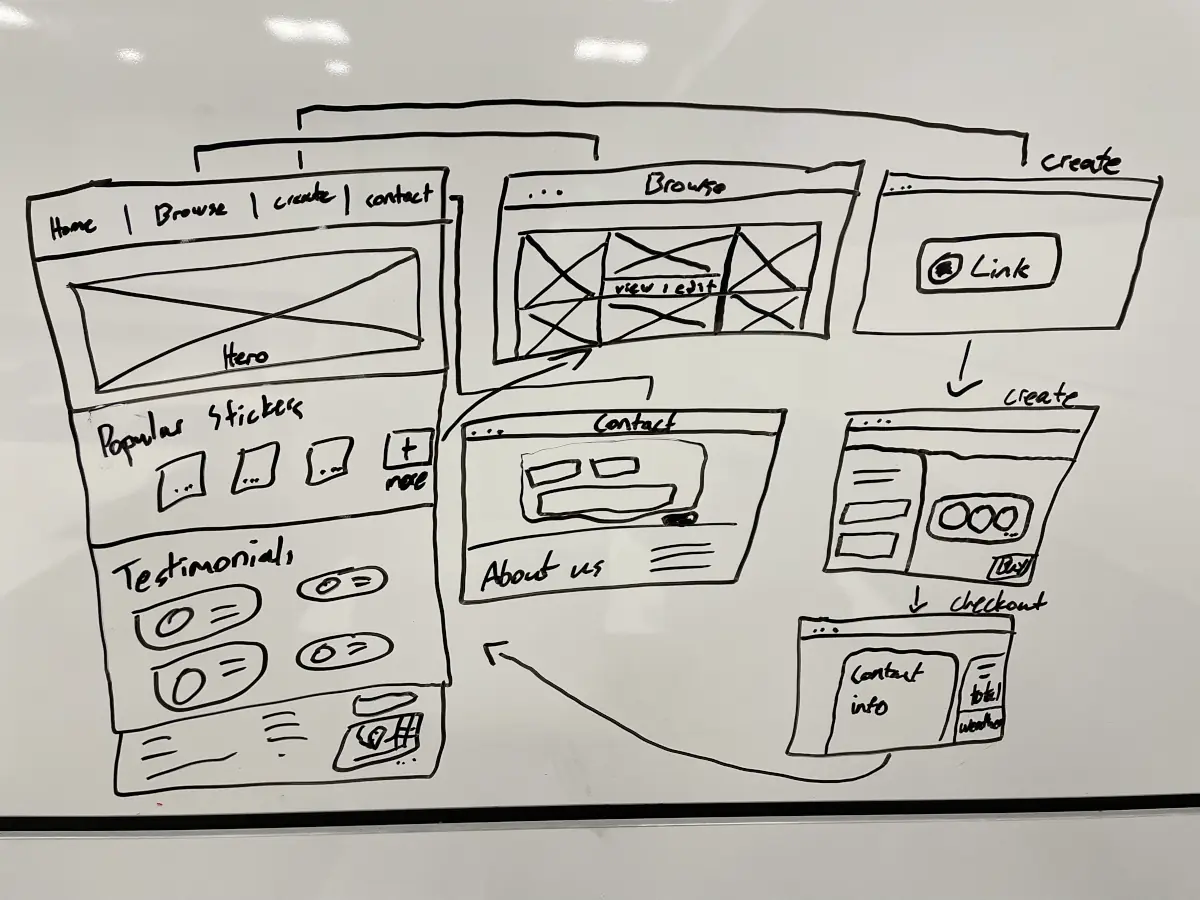 Home | Browse | create | contact
Hero
Popular Stickers
+
more
Testimonials
Browse
view / edit
contact
About us
create
Link
create
Buy
checkout
contact
info
total